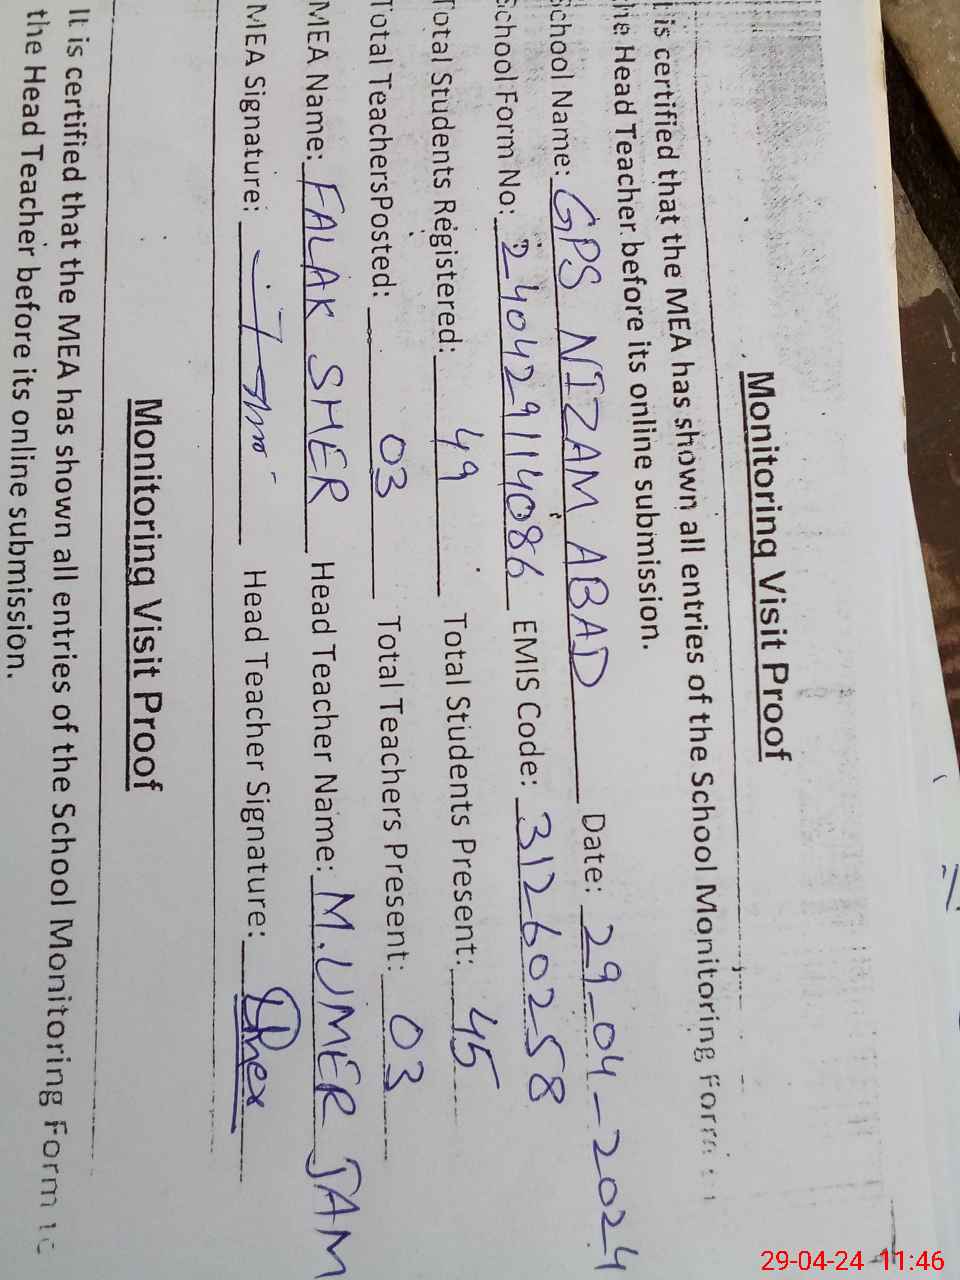 Monitoring Visit Proof
t is certified that the MEA has shown all entries of the School Monitoring Form to
the Head Teacher before its online submission.
School Name: GPS NIZAM ABAD Date: 29-04-2024
School Form No: 240429114086 EMIS Code: 31260258
Total Students Registered: 49 Total Students Present: 45
Total TeachersPosted: 03 Total Teachers Present: 03
MEA Name: FALAK SHER Head Teacher Name: M.UMER JAM
MEA Signature: Head Teacher Signature:
Monitoring Visit Proof
It is certified that the MEA has shown all entries of the School Monitoring Form to
the Head Teacher before its online submission.
29-04-24 11:46